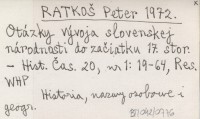 RATKOŠ Peter 1972.
Otázky vývoja slovenskej
národnosti do začiatku 17. stor.
– Hist. Čas. 20, nr 1: 19-64, Res.
WHP
Historia, nazwy osobowe i
geogr.